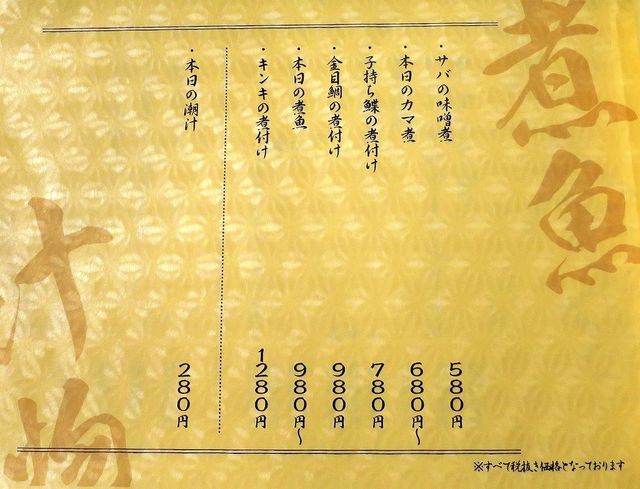 煮魚
・サバの味噌煮 580円
・本日のカマ煮 680円〜
・子持ち鰈の煮付け 780円
・金目鯛の煮付け 980円
・本日の煮魚 980円〜
・キンキの煮付け 1280円
・本日の潮汁 280円
汁物
※すべて税抜き価格となっております